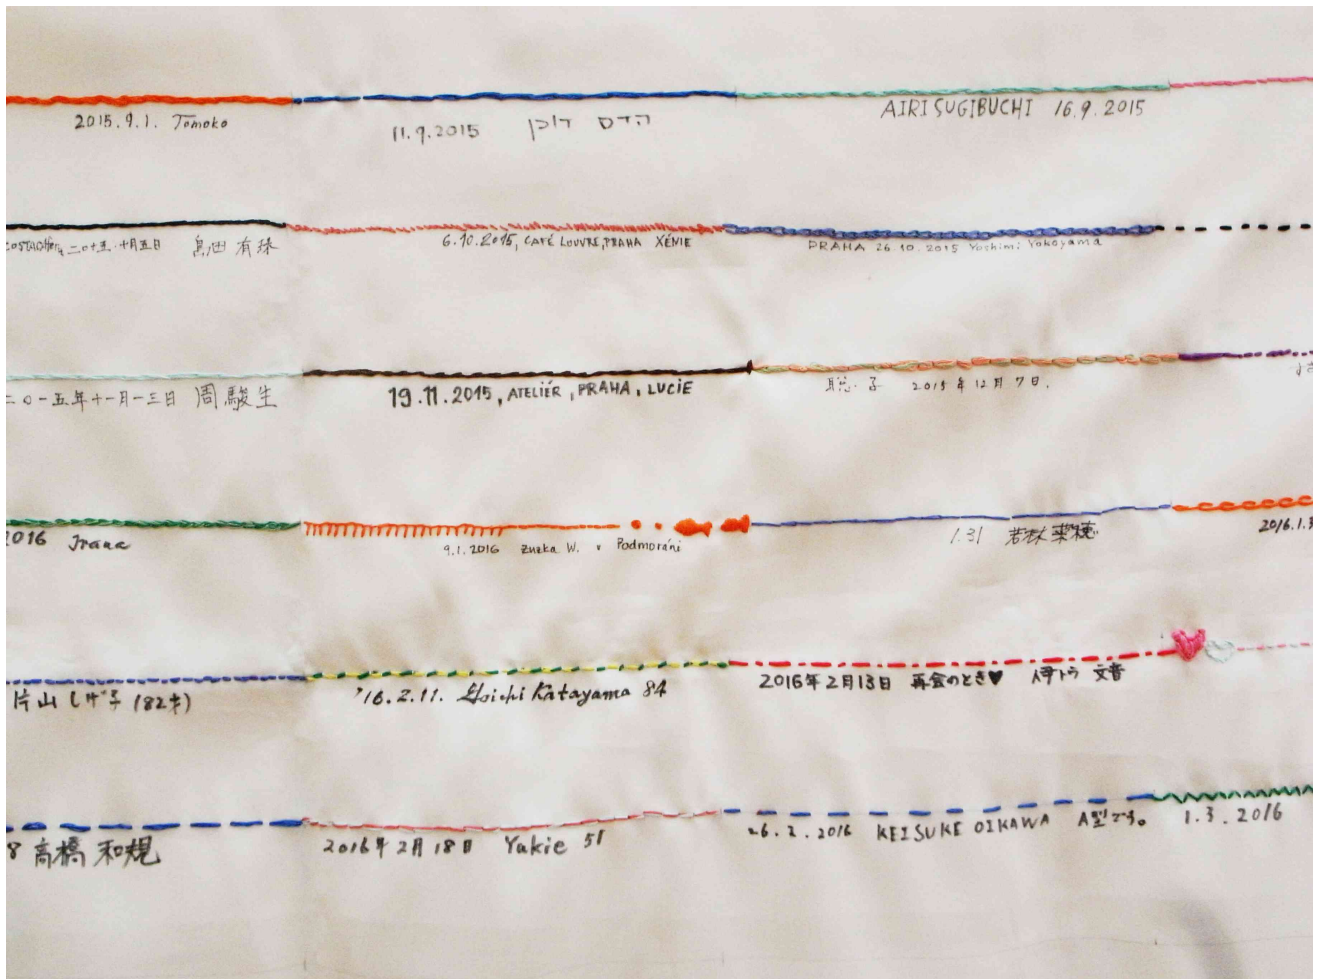 2015.9.1. Tomoko
11.9.2015 הדס דוכן
AIRI SUGIBUCHI 16.9.2015
二〇十五.十月五日 島田 有珠
6.10.2015, CAFÉ LOUVRE, PRAHA XÉNIE
PRAHA 26.10.2015 Yoshimi Yokoyama
二〇一五年十一月一三日 周駿生
19.11.2015, ATELIÉR, PRAHA, LUCIE
聡子 2015年12月7日.
2016 Irana
9.1.2016 Zuzka W. v Podmoráni
1.31 若林 菜穂
2016.1.3
片山 しげ子 (82才)
'16.2.11. Yoichi Katayama 84
2016年2月13日 再会のとき♥ 伊トウ 文音
8 高橋 和規
2016年2月18日 Yukie 51
26.2.2016 KEISUKE OIKAWA A型です。
1.3.2016